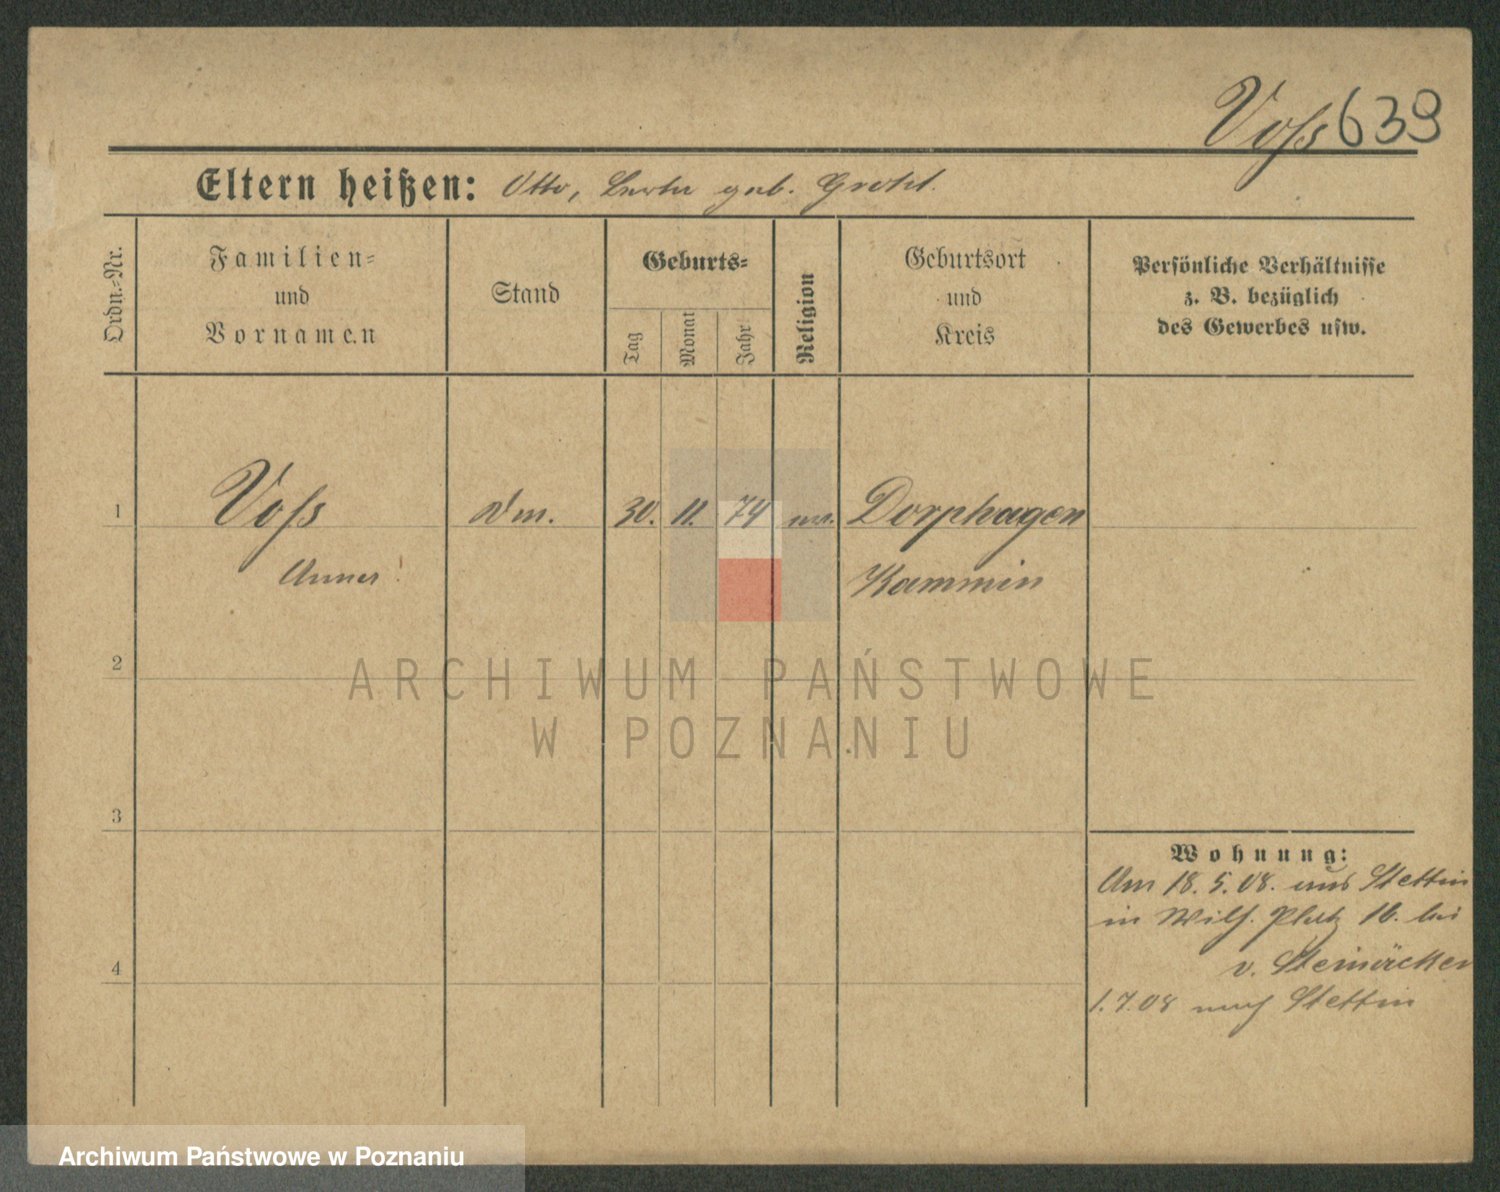 Voss 639
Eltern heißen: Otto, Berta geb. Groht.
Ordn.-Nr.
Familien=
und
Vornamen
Stand
Geburts=
Tag
Monat
Jahr
Religion
Geburtsort
und
Kreis
Persönliche Verhältnisse
z. B. bezüglich
des Gewerbes usw.
1 Voss 30. 11. 74 Dorphagen
Anna Kammin
2
3
4
ARCHIWUM PAŃSTWOWE
W POZNANIU
Wohnung:
Am 18. 5. 08. aus Stettin
in Wilh. Platz 16. bei
v. Steinäcker
1. 7. 08 nach Stettin
Archiwum Państwowe w Poznaniu